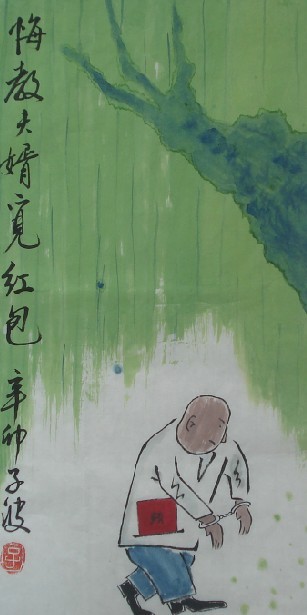 悔教夫婿覓红包 辛卯子波